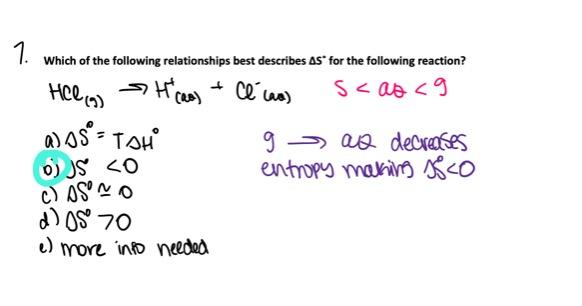 7. Which of the following relationships best describes ΔS° for the following reaction?
HCl(g) → H⁺(aq) + Cl⁻(aq)
S < aq < g
a) ΔS° = TΔH°
b) ΔS° < 0
c) ΔS° ≃ 0
d) ΔS° > 0
e) more info needed
g → aq decreases
entropy making ΔS° < 0